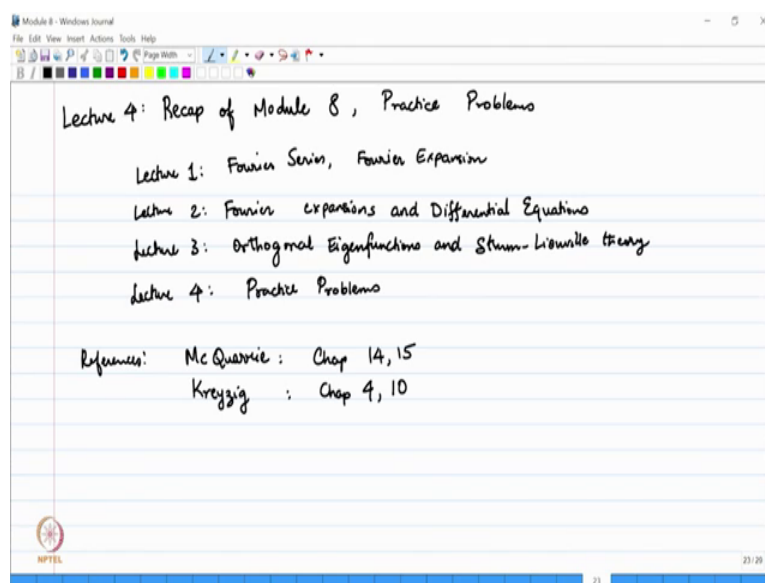 Module 8 - Windows Journal
File Edit View Insert Actions Tools Help
Page Width
B I
Lecture 4: Recap of Module 8, Practice Problems
Lecture 1: Fourier Series, Fourier Expansion
Lecture 2: Fourier expansions and Differential Equations
Lecture 3: Orthogonal Eigenfunctions and Sturm-Liouville theory
Lecture 4: Practice Problems
References: McQuarrie: Chap 14, 15
Kreyzig : Chap 4, 10
NPTEL
23/29
23